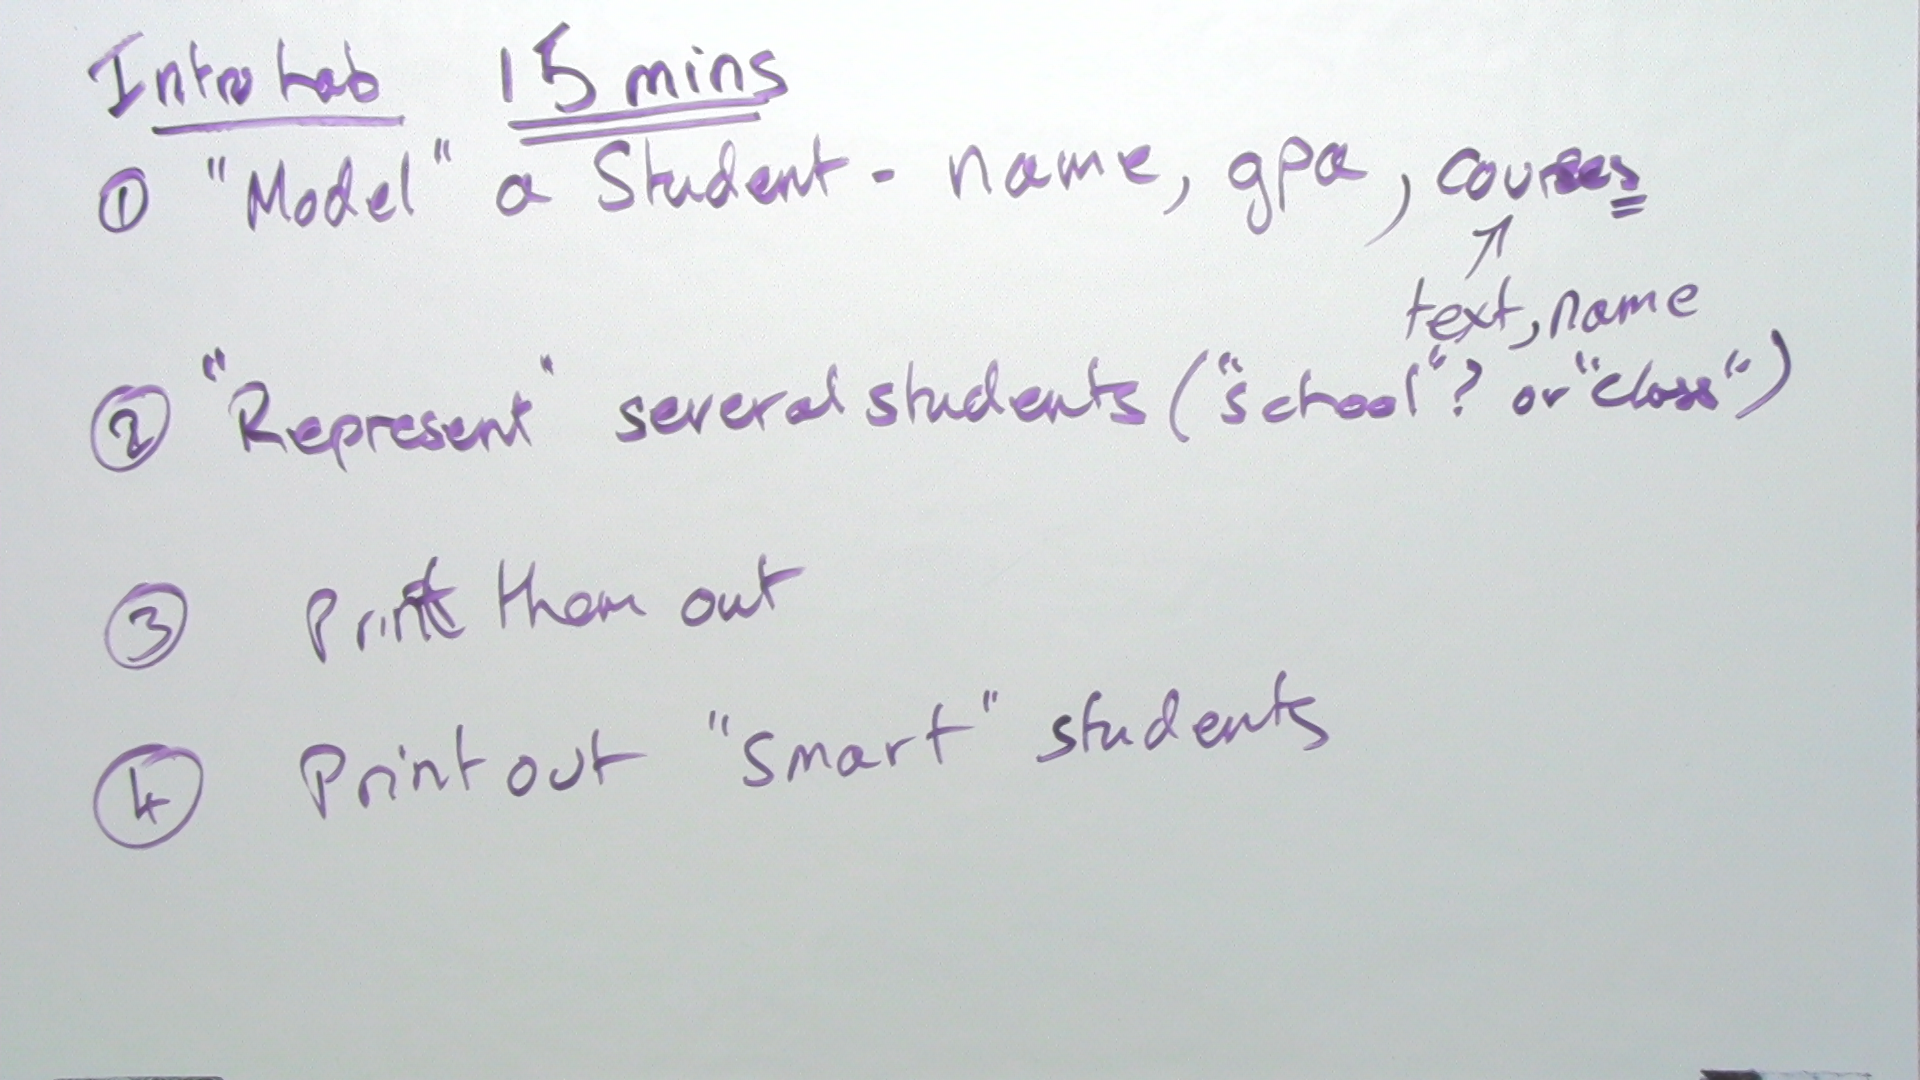 Intro Lab 15 mins
① "Model" a Student - name, gpa, courses
text, name
② "Represent" several students ("school"? or "class")
③ Print them out
④ Print out "smart" students